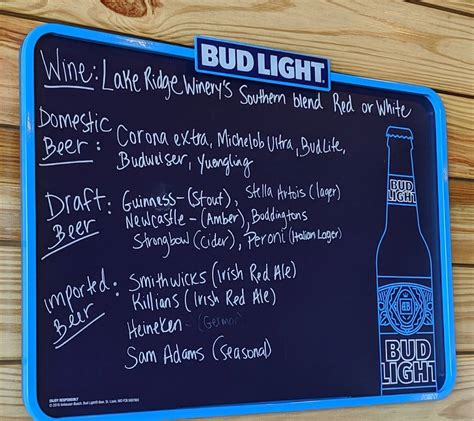 BUD LIGHT
Wine: Lake Ridge Winery's Southern blend Red or White
Domestic
Beer: Corona extra, Michelob Ultra, Bud Lite,
Budwuiser, Yuengling
Draft
Beer: Guinness-(Stout), Stella Artois (lager)
Newcastle-(Amber), Boddingtons
Strongbow (Cider), Peroni (Italian Lager)
Imported
Beer: Smithwicks (Irish Red Ale)
Killians (Irish Red Ale)
Heineken-(German
Sam Adams (Seasonal)
BUD
LIGHT
AB
BUD
LIGHT
ENJOY RESPONSIBLY